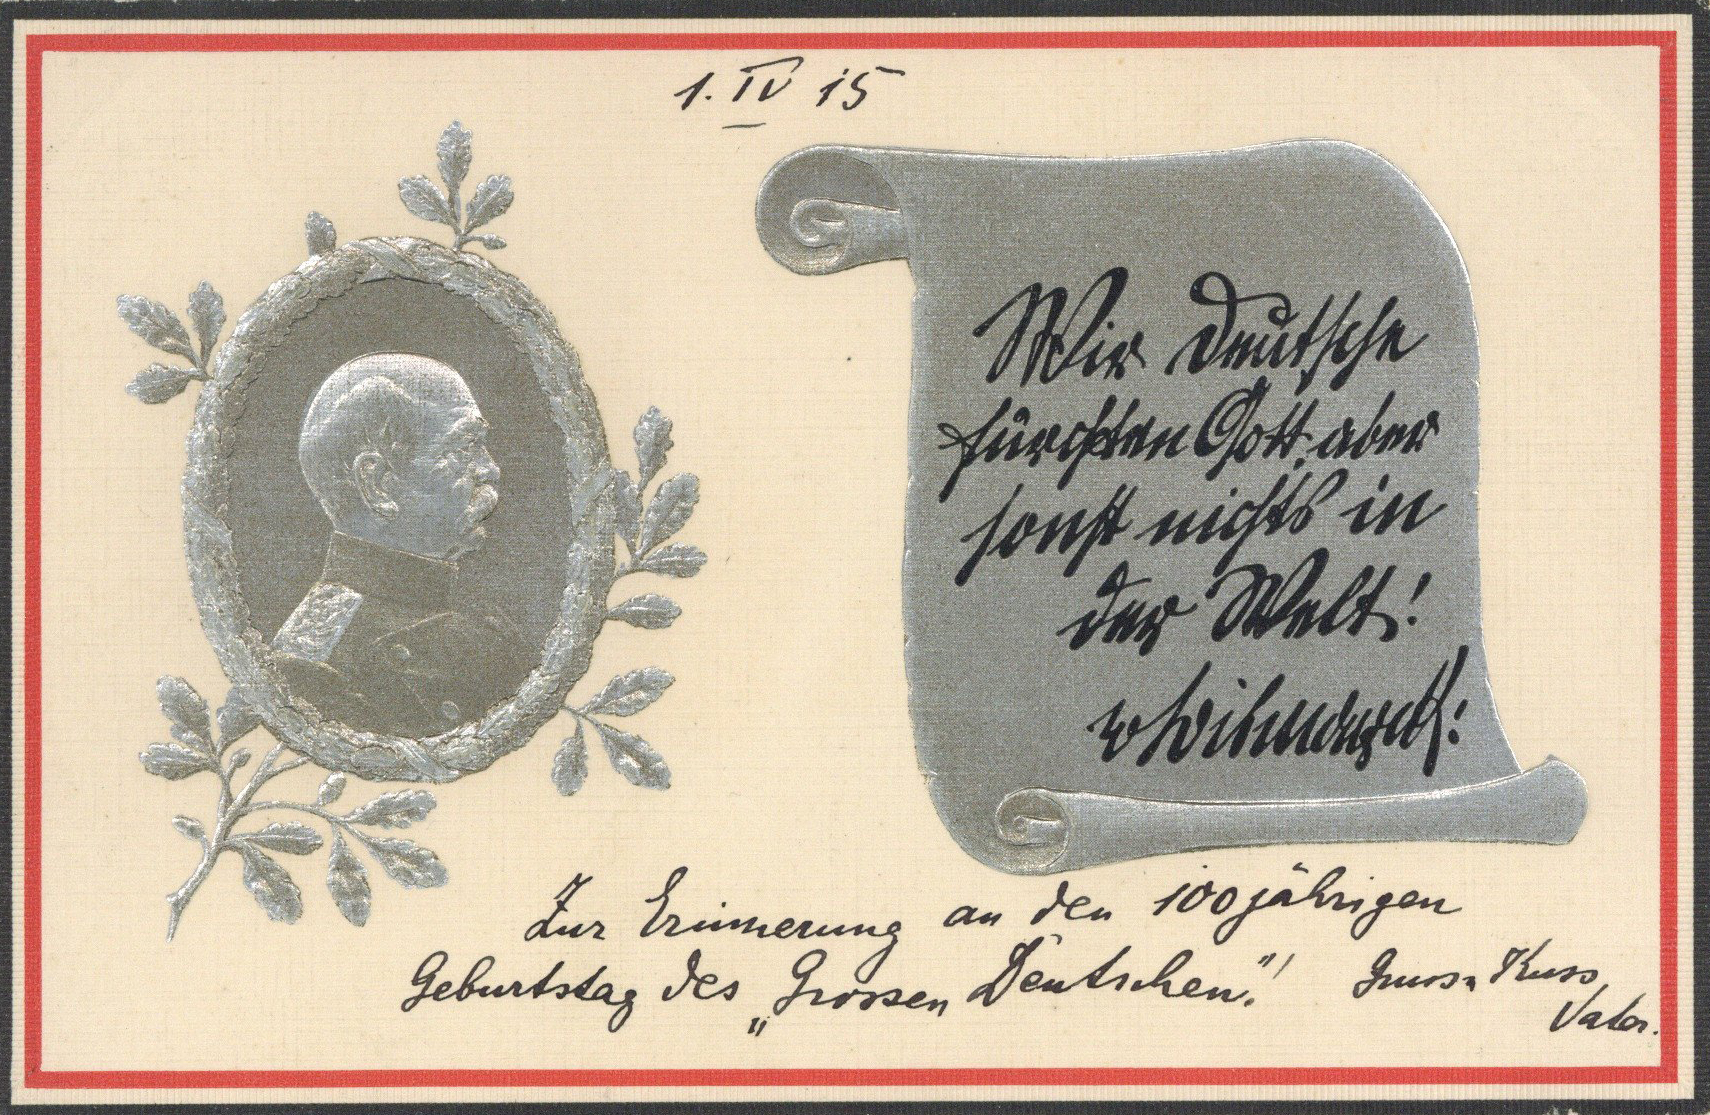 1. IV 15
Wir Deutsche
fürchten Gott, aber
sonst nichts in
der Welt!
v Bismarck
Zur Erinnerung an den 100jährigen
Geburtstag des „Grossen Deutschen"! Gruss u Kuss
Vater.